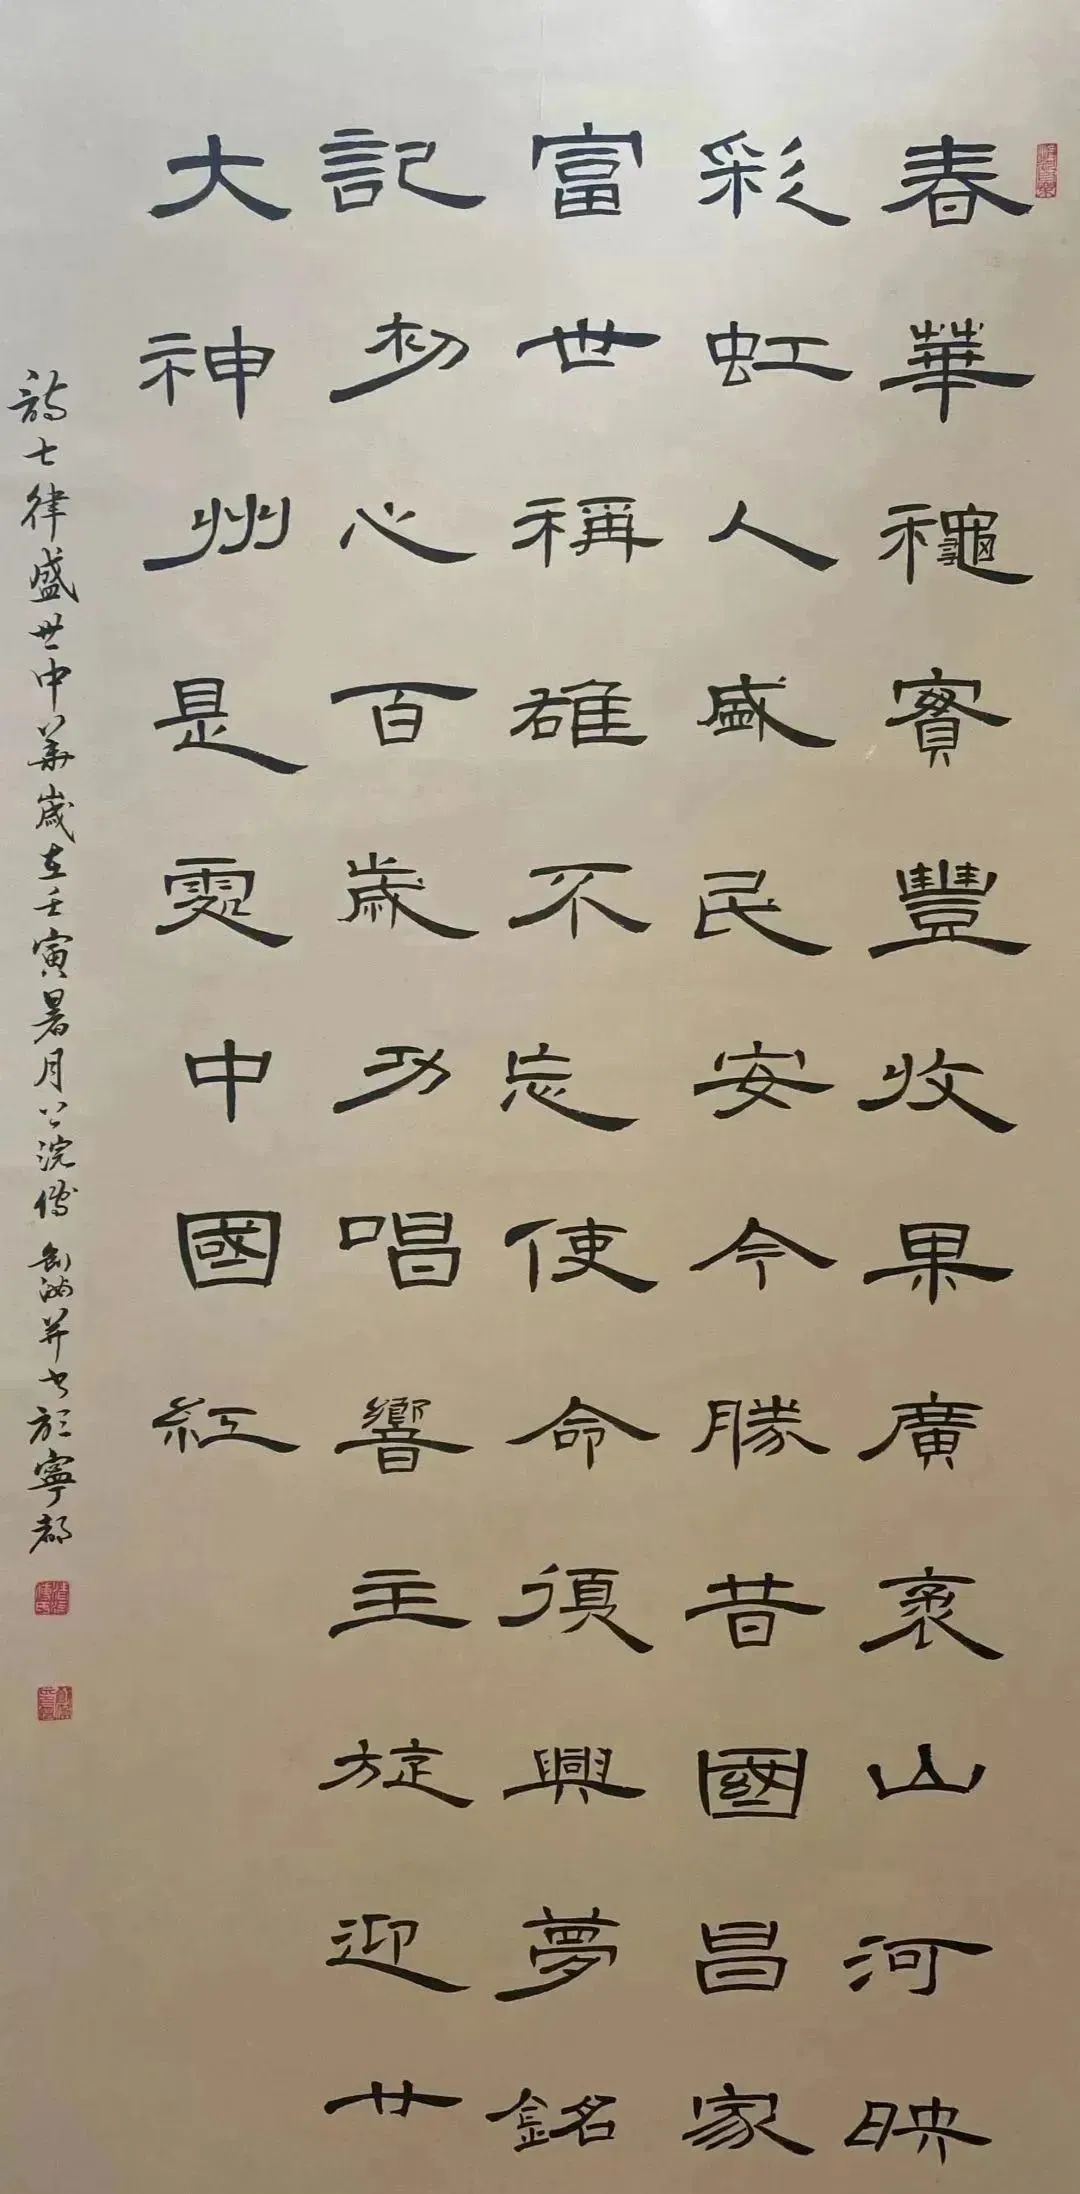 春華龝實豐收果廣袤山河映
彩虹人盛民安今勝昔國昌家
富世稱雄不忘使命須興夢銘
記初心百歲功唱響主旋迎廿
大神州是處中國紅
詩七律盛世中華歲在壬寅暑月上浣并書於寧都